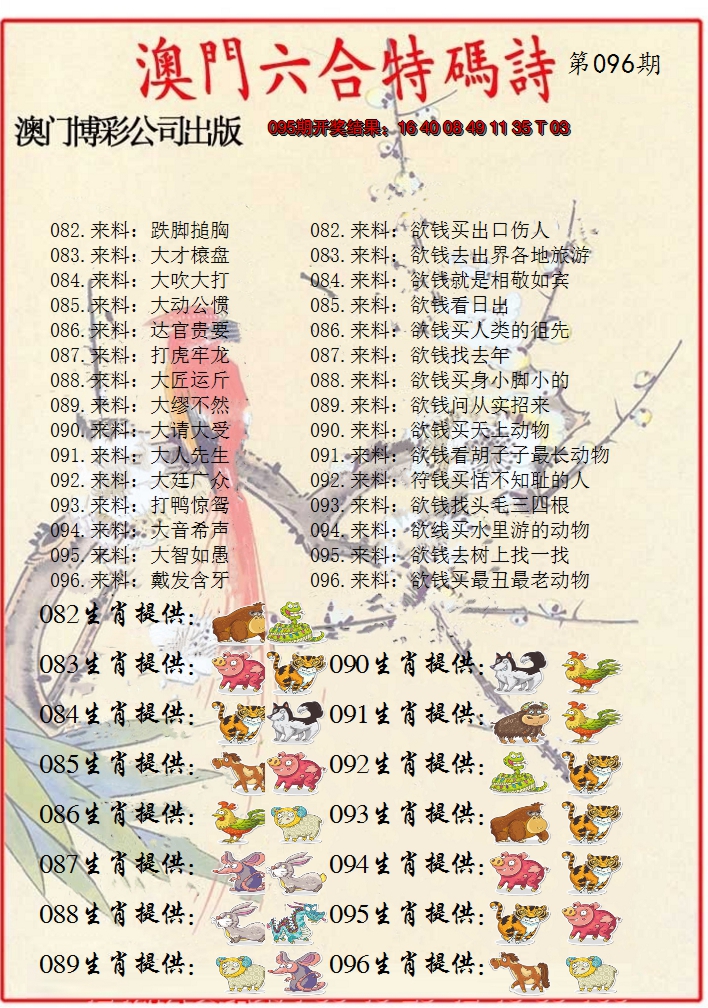 澳門六合特碼詩 第096期
澳门博彩公司出版 095期开奖结果：16 40 08 49 11 35 T 03
082.来料：跌脚搥胸 082.来料：欲钱买出口伤人
083.来料：大才榱盘 083.来料：欲钱去出界各地旅游
084.来料：大吹大打 084.来料：欲钱就是相敬如宾
085.来料：大动公惯 085.来料：欲钱看日出
086.来料：达官贵要 086.来料：欲钱买人类的徂先
087.来料：打虎牢龙 087.来料：欲钱找去年
088.来料：大匠运斤 088.来料：欲钱买身小脚小的
089.来料：大缪不然 089.来料：欲钱问从实招来
090.来料：大请大受 090.来料：欲钱买天上动物
091.来料：大人先生 091.来料：欲钱看胡子子最长动物
092.来料：大廷广众 092.来料：符钱买恬不知耻的人
093.来料：打鸭惊鸳 093.来料：欲钱找头毛三四根
094.来料：大音希声 094.来料：欲线买水里游的动物
095.来料：大智如愚 095.来料：欲钱去树上找一找
096.来料：戴发含牙 096.来料：欲钱买最丑最老动物
082生肖提供：
083生肖提供： 090生肖提供：
084生肖提供： 091生肖提供：
085生肖提供： 092生肖提供：
086生肖提供： 093生肖提供：
087生肖提供： 094生肖提供：
088生肖提供： 095生肖提供：
089生肖提供： 096生肖提供：